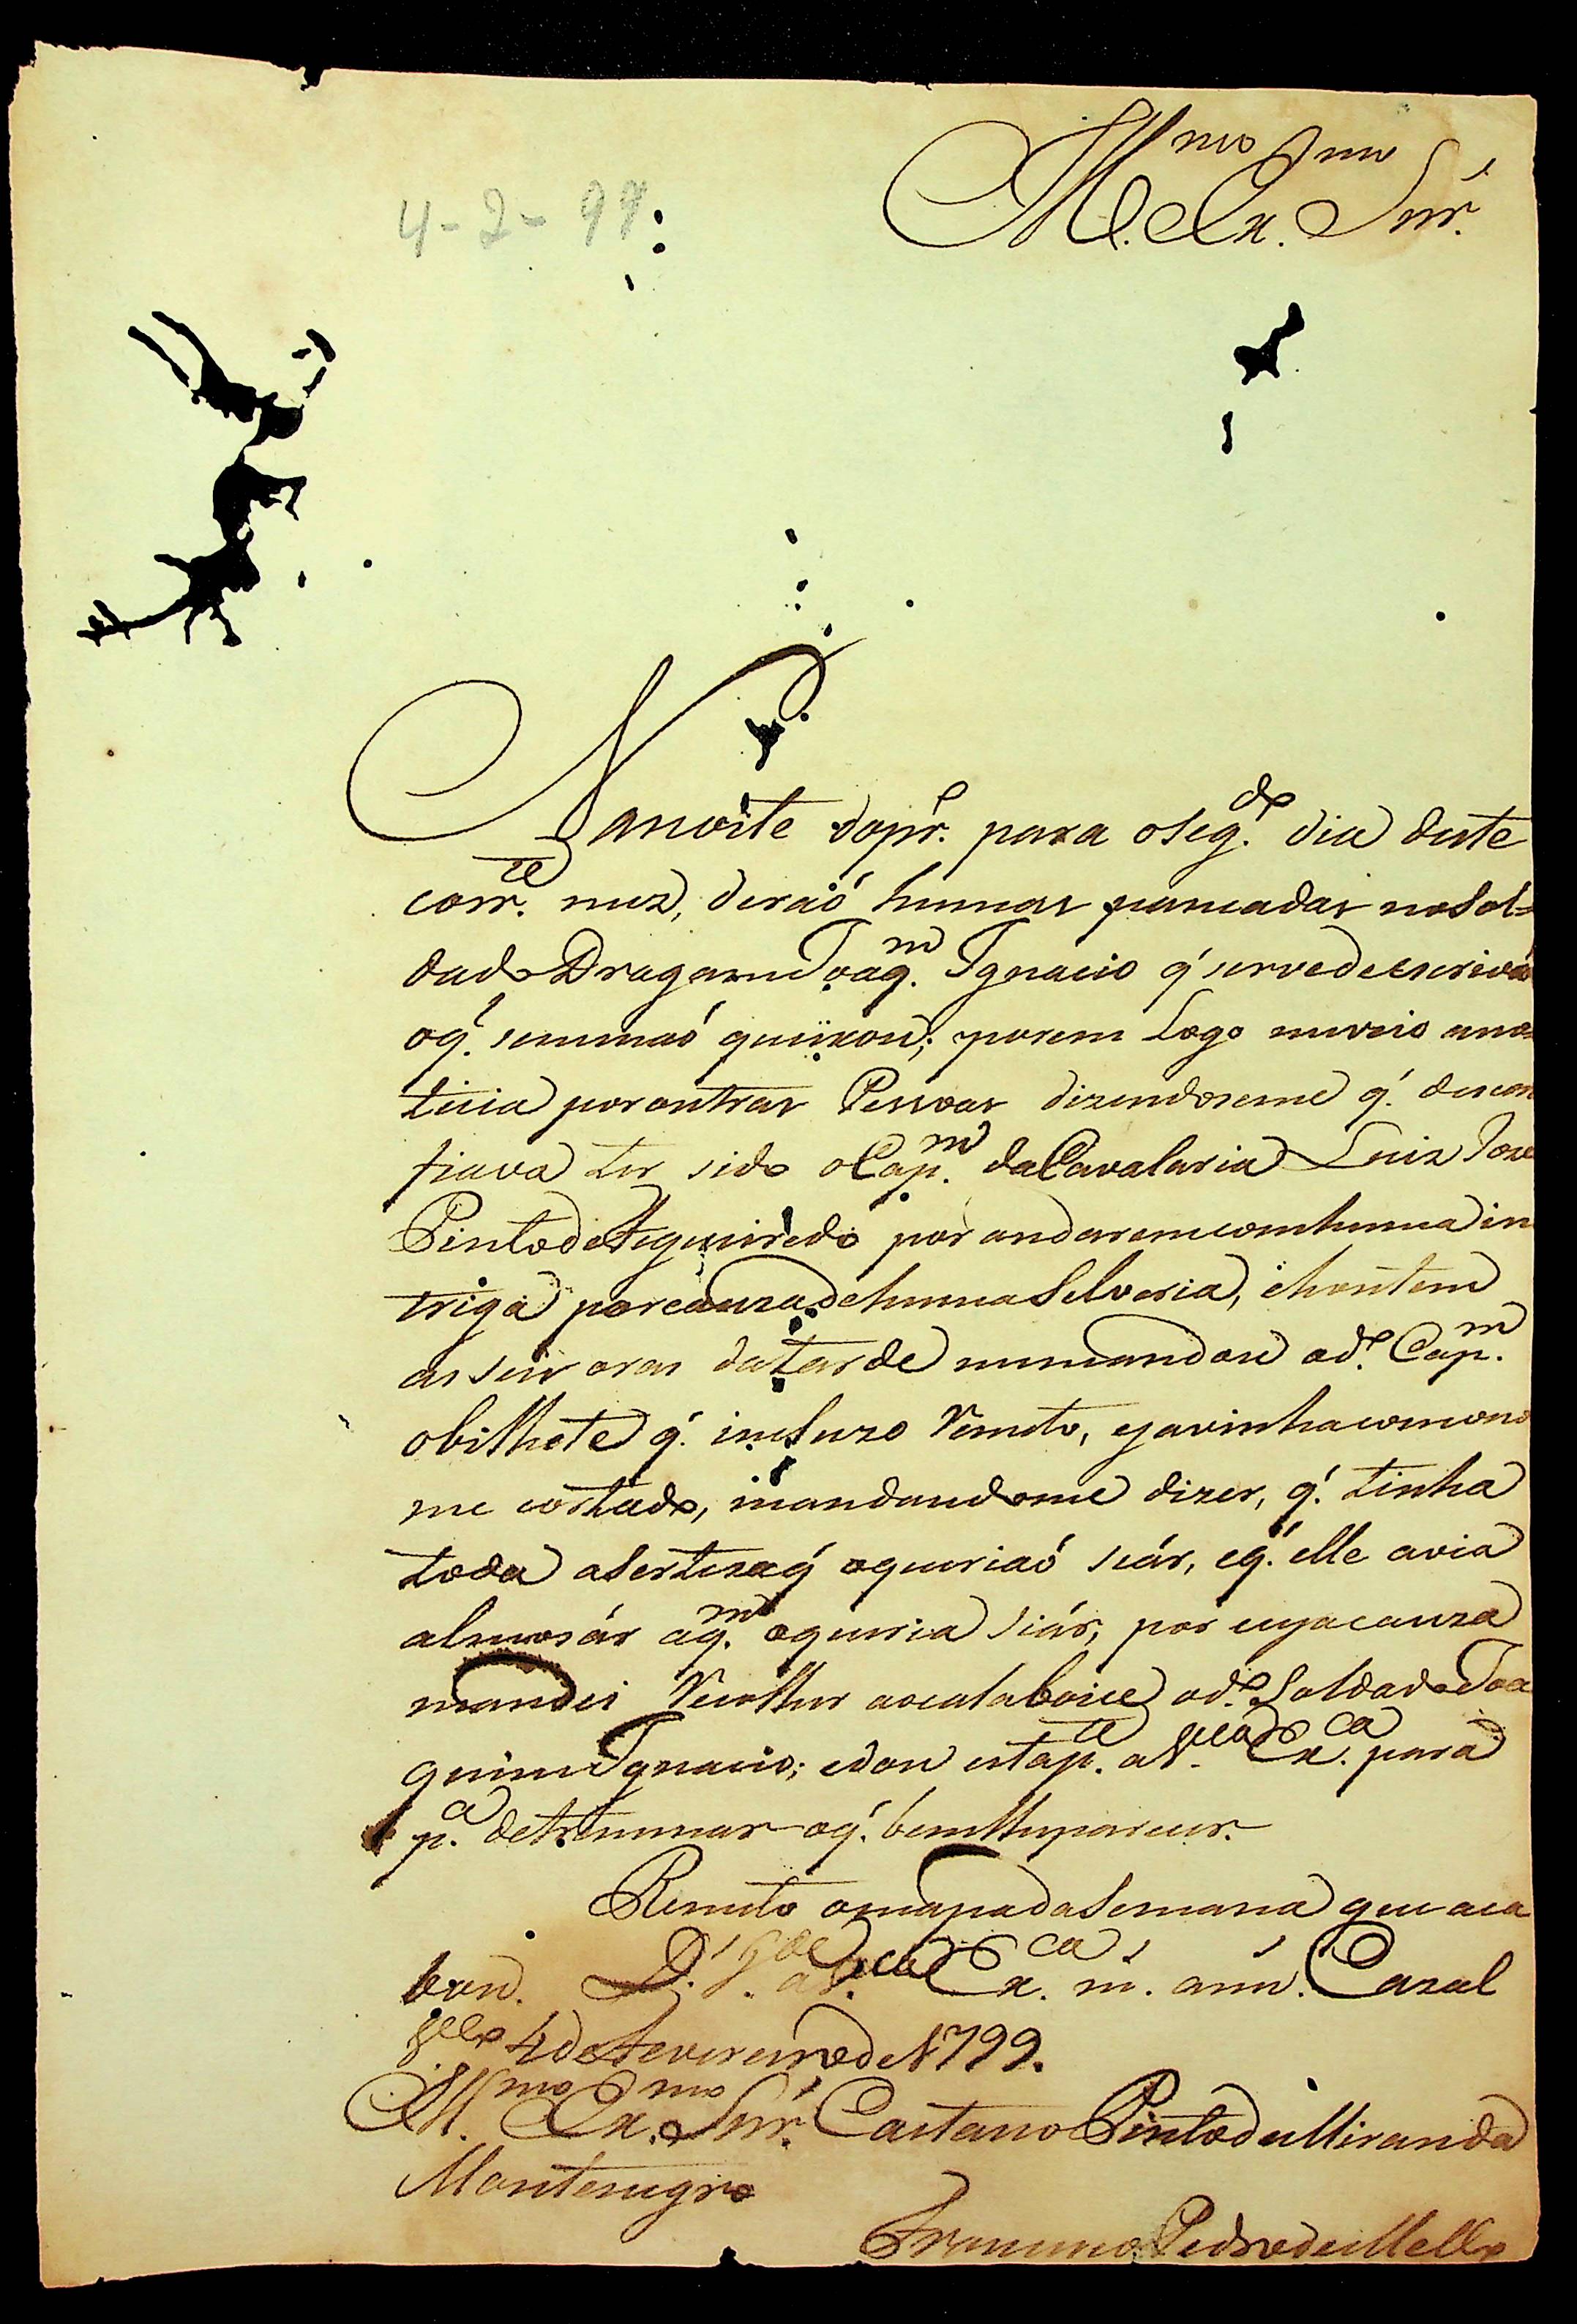 4-2-99
Ill.mo Ex.mo Snr.
Na noite do pr.o para o seg.do dia deste
corr.te mez, deraó humas pancadas no Sol=
dado Dragam Joaq.m Ignacio q' serve de escrivaó
o q' se me naó queixou; porem Logo me veio a no
ticia por outras Pessoas dizendoseme q'. descon
fiava ter sido o Cap.m da Cavalaria Luiz Joze
Pinto de Figueiredo por andarem com huma in
triga por cauza de huma Silveria, e hontem
as seis oras da tarde me mandou o d.o Cap.m
o bilhete q'. incluzo Remeto, e ja vinha com o no
me cortado, mandandome dizer, q'. tinha
toda a serteza q' o queriaó siár, e q'. elle avia
almosár a q.m o queria siár; por cuja cauza
mandei Recolher ao calaboice o d.o Soldado Joa
quim Ignacio; e dou esta p.te a V.ca Ex.ca para
p.a detreminar o q'. bem lhe pareser.
Remeto o mapa da Semana que aca
bou. D.s g.de a V.ca Ex.ca m.s ann.s Cazal
V.co 4 de Fevereiro de 1799.
Ill.mo Ex.mo Snr. Caetano Pinto de Miranda
Montenegro
Francisco Pedro de Mello